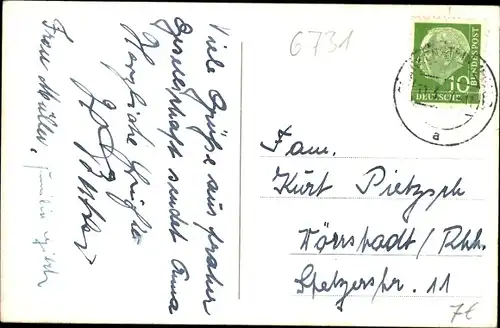 Viele Grüße aus froher
Gesellschaft sendet Anna
Herzliche Grüße
Frau Müller,
6731
DEUTSCHE BUNDESPOST
10
a
Fam.
Kurt Pietzsch
Wörrstadt/Rhh.
Spetzerstr. 11
7€